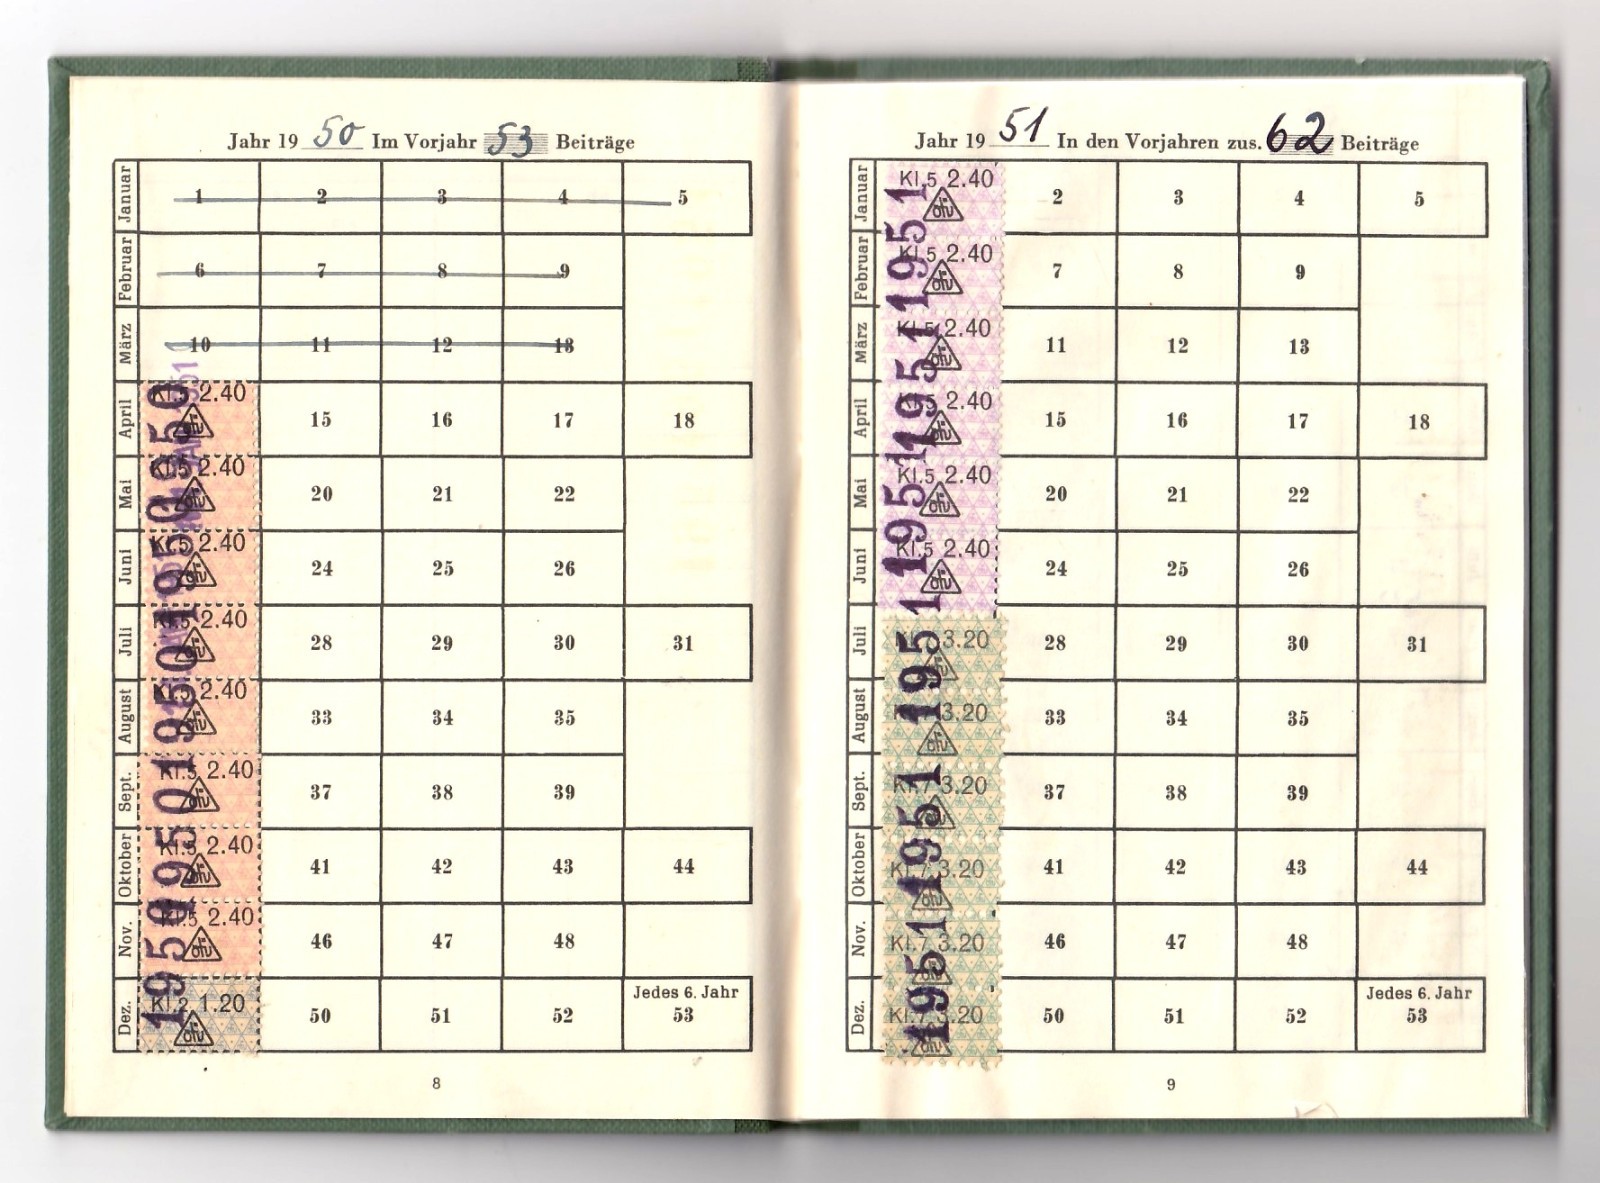 Jahr 19 50 Im Vorjahr 53 Beiträge
Januar 1 2 3 4 5
Februar 6 7 8 9
März 10 11 12 13
April Kl.5 2.40 15 16 17 18
Mai Kl.5 2.40 20 21 22
Juni Kl.5 2.40 24 25 26
Juli Kl.5 2.40 28 29 30 31
August Kl.5 2.40 33 34 35
Sept. Kl.5 2.40 37 38 39
Oktober Kl.5 2.40 41 42 43 44
Nov. Kl.5 2.40 46 47 48
Jedes 6. Jahr
Dez. Kl.2 1.20 50 51 52 53
1950 1950 1950 1950
8
Jahr 19 51 In den Vorjahren zus. 62 Beiträge
Januar Kl.5 2.40 2 3 4 5
Februar Kl.5 2.40 7 8 9
März Kl.5 2.40 11 12 13
April Kl.5 2.40 15 16 17 18
Mai Kl.5 2.40 20 21 22
Juni Kl.5 2.40 24 25 26
Juli Kl.7 3.20 28 29 30 31
August Kl.7 3.20 33 34 35
Sept. Kl.7 3.20 37 38 39
Oktober Kl.7 3.20 41 42 43 44
Nov. Kl.7 3.20 46 47 48
Jedes 6. Jahr
Dez. Kl.7 3.20 50 51 52 53
1951 1951 1951 1951 1951 1951
9